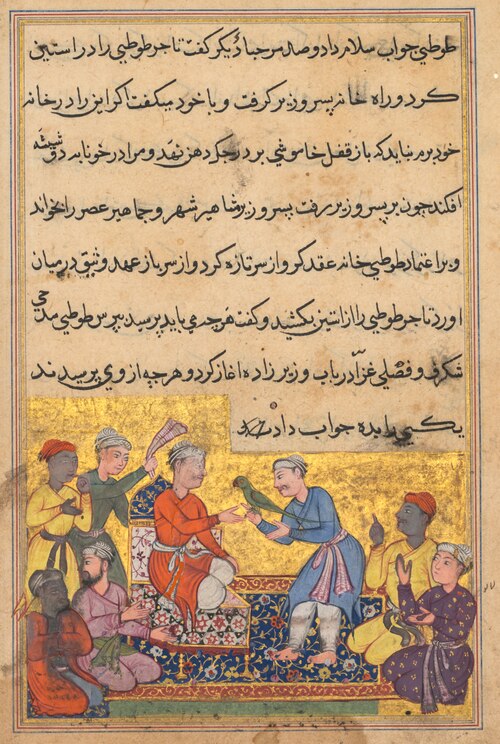 طوطي جواب سلام داد و صد مرحبا ديكر كفت تاجر طوطي را در استين
كرد و راه خانه پسر وزير كرفت و با خود ميكفت اكر اين را در خانه
خود برم نبايد كه باز قفل خاموشي بر درجك دهن نهد و مرا در خونابه
افكند چون بر پسر وزير رفت پسر وزير مشاهير شهر و جماهير عصر را بخواند
و بر اعتماد طوطي خانه عقد كرو از سر تازه كرد و از سر باز عهد وثيق در ميان
اورد تاجر طوطي را از استين بكشيد و كفت هر چه مي بايد پرسيد بپرس طوطي مدحي
شكرف و فصلي غرا در باب وزير زاده اغاز كرد و هر چه از وي پرسيدند
يكي را ده جواب داد